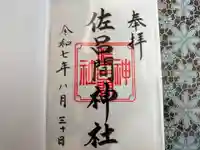 奉拝
佐呂間神社
令和七年八月三十日